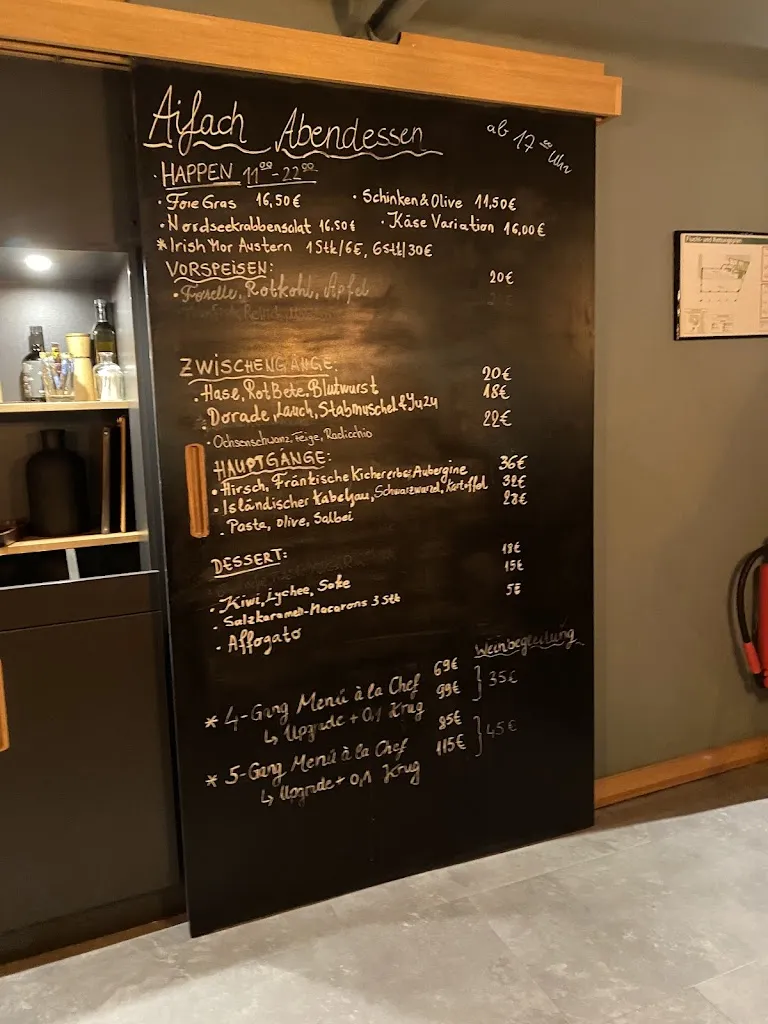 Aifach Abendessen ab 17⁰⁰ Uhr
· HAPPEN 11⁰⁰-22⁰⁰
· Foie Gras 16,50€ · Schinken & Olive 11,50€
· Nordseekrabbensalat 16.50€ · Käse Variation 16,00€
* Irish Mor Austern 1Stk/6€, 6Stk/30€
VORSPEISEN:
· Forelle, Rotkohl, Apfel 20€
ZWISCHENGÄNGE:
· Hase, Rot Bete, Blutwurst 20€
· Dorade, Lauch, Stabmuschel & Yuzu 18€
· Ochsenschwanz, Feige, Radicchio 22€
HAUPTGÄNGE:
· Hirsch, Fränkische Kichererbse, Aubergine 36€
· Isländischer Kabeljau, Schwarzwurzel, Kartoffel 32€
· Pasta, Olive, Salbei 28€
DESSERT:
· Kiwi, Lychee, Sake 18€
· Salzkaramell-Macarons 3 Stk 15€
· Affogato 5€
Weinbegleitung
* 4-Gang Menü à la Chef 69€
↳ Upgrade + 0,1 Krug 99€ } 35€
* 5-Gang Menü à la Chef 85€
↳ Upgrade + 0,1 Krug 115€ } 45€
Flucht- und Rettungsplan